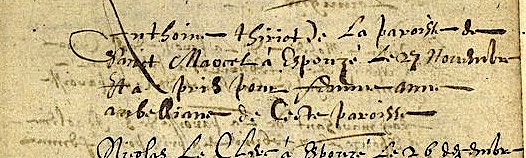 Anthoine thiriot de La paroisse de
sainct Marcel à Espouzé Le 27 Novembre
Et a pris pour femme anne
aubelliane de Ceste paroisse
Nicolas Le Clerc à Espouzé Le 26 decembre